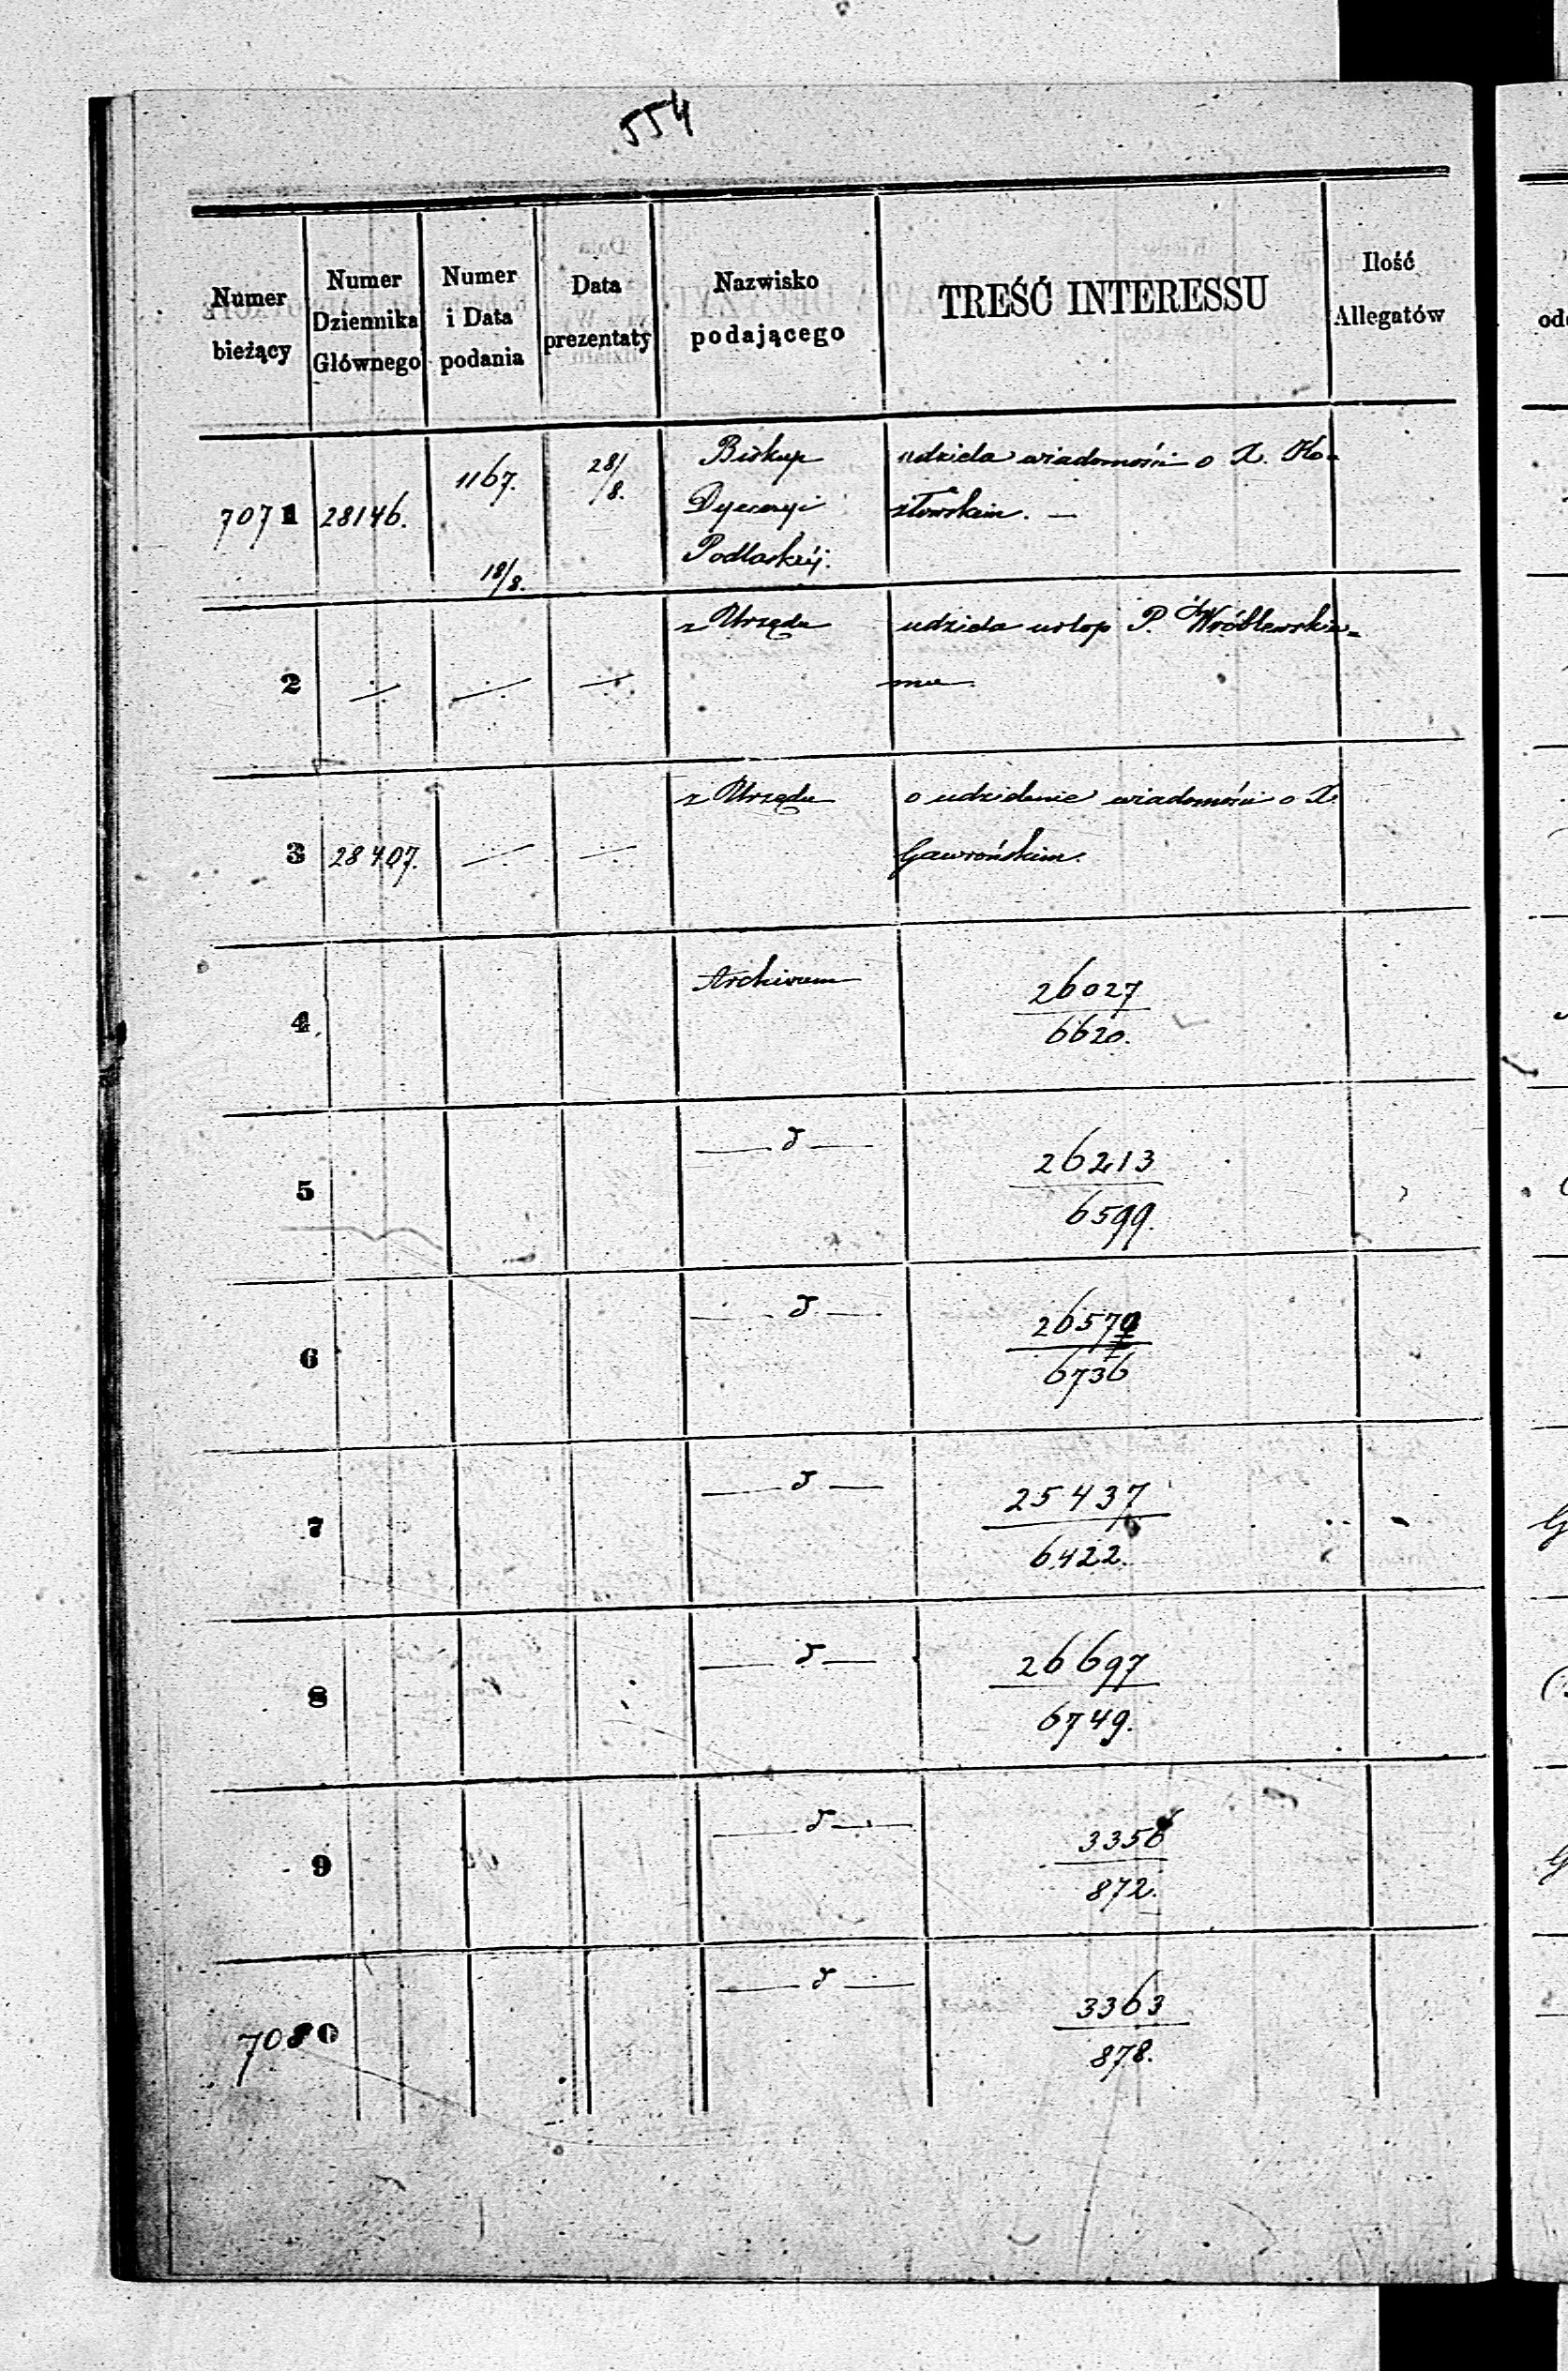 554
Numer bieżący
Numer Dziennika Głównego
Numer i Data podania
Data prezentaty
Nazwisko podającego
TREŚĆ INTERESSU
Ilość Allegatów
7071 28146. 1167. 18/8. 28/8.
Biskup
Dyecezyi
Podlaskiéj.
udziela wiadomości o X. Ko-
złowskim. —
2 ÷ ÷ ÷
z Urzędu
udziela urlop P. Wróblewskie-
mu
3 28407. ÷ ÷
z Urzędu
o udzielenie wiadomości o X.
Gawrońskim.
4 Archiwum
26027
6620.
5 — d —
26213
6599.
6 — d —
2657
6736
7 — d —
25437
6422.
8 — d —
26697
6749.
9 — d —
3356
872.
7080 — d —
3363
878.